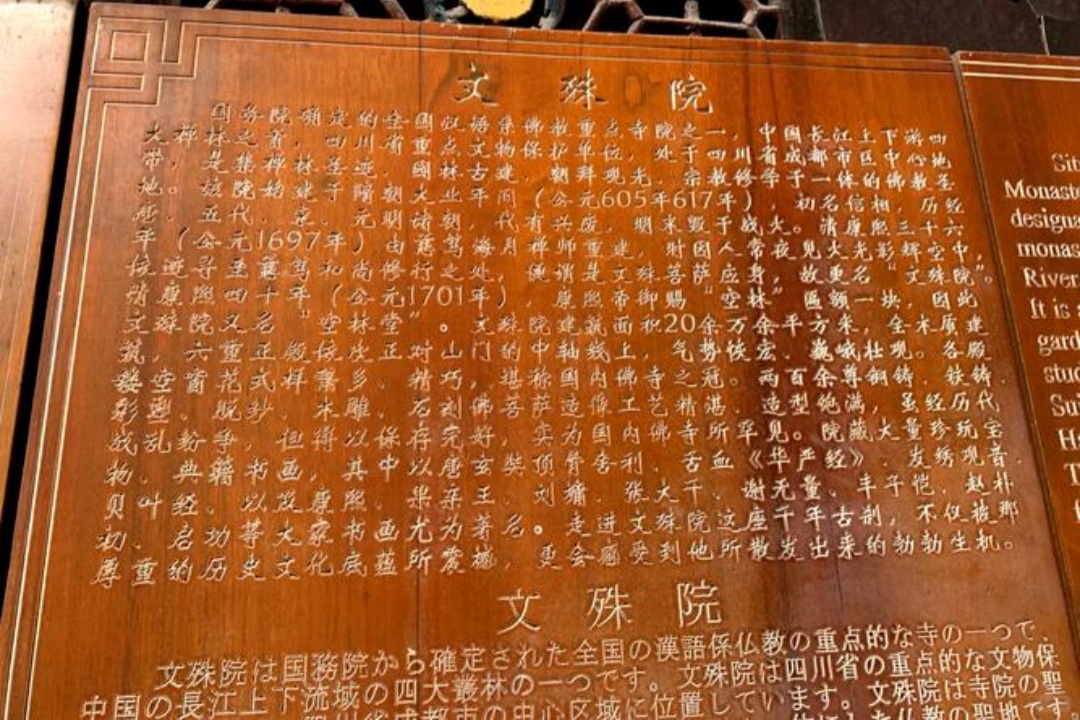 文殊院
国务院确定的全国汉语系佛教重点寺院之一，中国长江上下游四
大禅林之首，四川省重点文物保护单位，处于四川省成都市区中心地
带，是集禅林圣迹、园林古建、朝拜观光、宗教修学于一体的佛教圣
地。该院始建于隋朝大业年间（公元605年617年），初名信相，历经
五代、宋、元明诸朝，代有兴废，明末毁于战火。清康熙三十六
年（公元1697年）由慈笃海月禅师重建，时因人常夜见火光影辉空中，
至慈笃和尚修行之处，便谓是文殊菩萨应身，故更名“文殊院”。
清康熙四十年（公元1701年），康熙帝御赐“空林”匾额一块，因此
文殊院又名“空林堂”。文殊院建筑面积20余万余平方米，全木质建
筑，六重正殿依次正对山门的中轴线上，气势恢宏、巍峨壮观。各殿
镂空窗花式样繁多、精巧，堪称国内佛寺之冠。两百余尊铜铸、铁铸、
彩塑、脱纱、木雕、石刻佛菩萨造像工艺精湛、造型饱满，虽经历代
战乱纷争，但得以保存完好，实为国内佛寺所罕见。院藏大量珍玩宝
物、典籍书画，其中以唐玄奘顶骨舍利、舌血《华严经》、发绣观音、
贝叶经、以及康熙、果亲王、刘墉、张大千、谢无量、丰子恺、赵朴
初、启功等大家书画尤为著名。走进文殊院这座千年古刹，不仅被那
厚重的历史文化底蕴所震撼，更会感受到他所散发出来的勃勃生机。
文殊院
文殊院は国務院から確定された全国の漢語係仏教の重点的な寺の一つで、
中国の長江上下流域の四大叢林の一つです。文殊院は四川省の重点的な文物保
の中心区域に位置しています。文殊院は寺院の聖
Monaste
designa
monas
River
It is
gard
stud